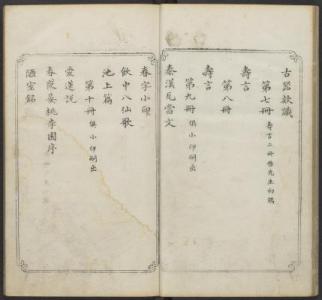 古器款識
第七冊 壽言二冊
壽言
第八冊
壽言
第九冊 俱小印刷出
秦漢瓦當文
春字小印
飲中八仙歌
池上篇
第十冊 俱小印刷出
愛蓮說
春夜宴桃李園序
陋室銘